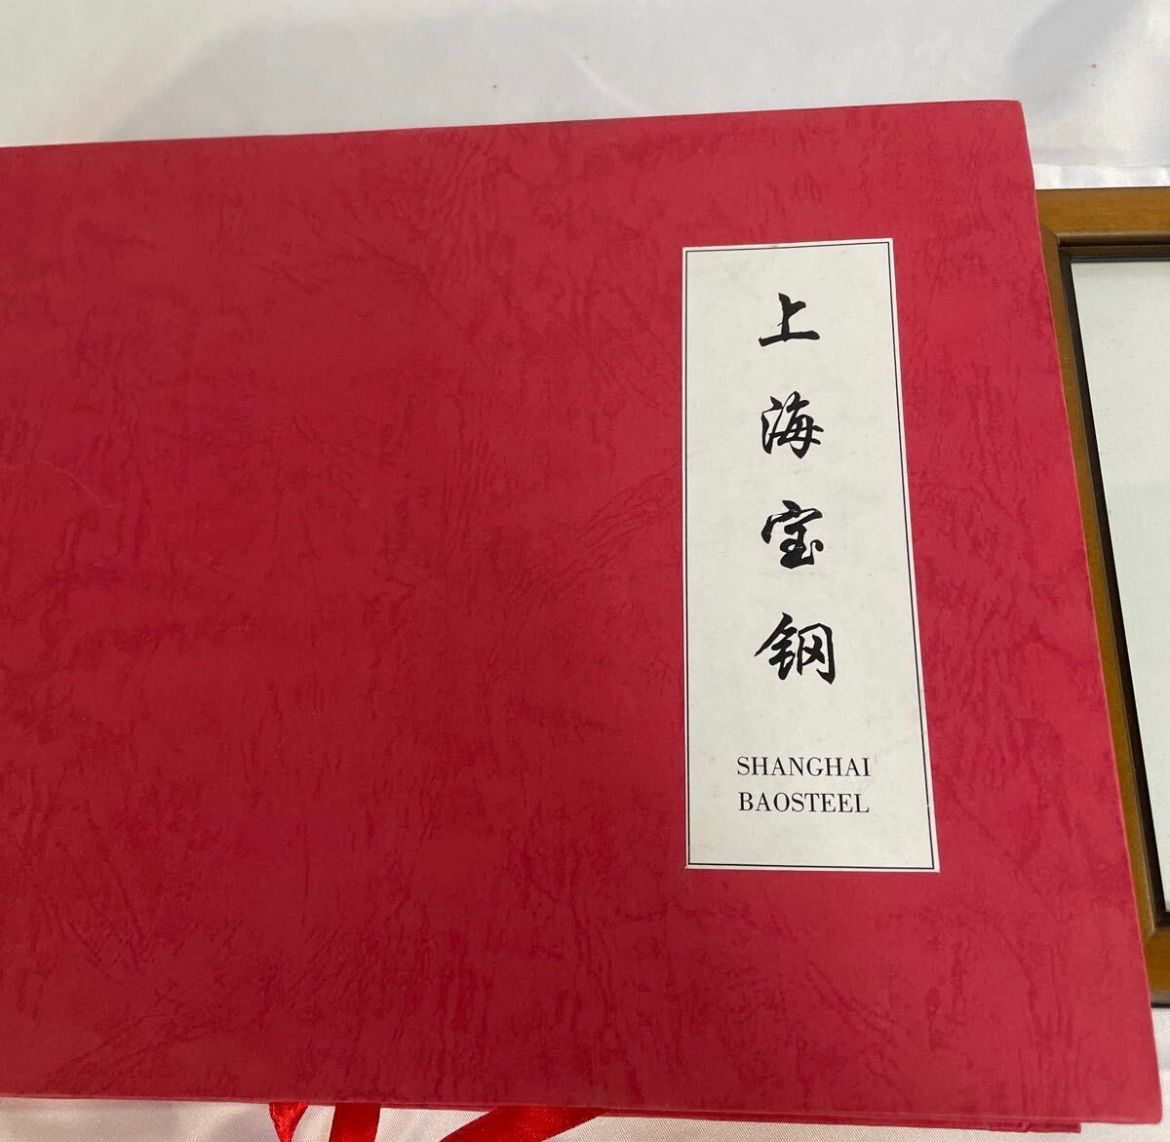 上海宝钢
SHANGHAI
BAOSTEEL